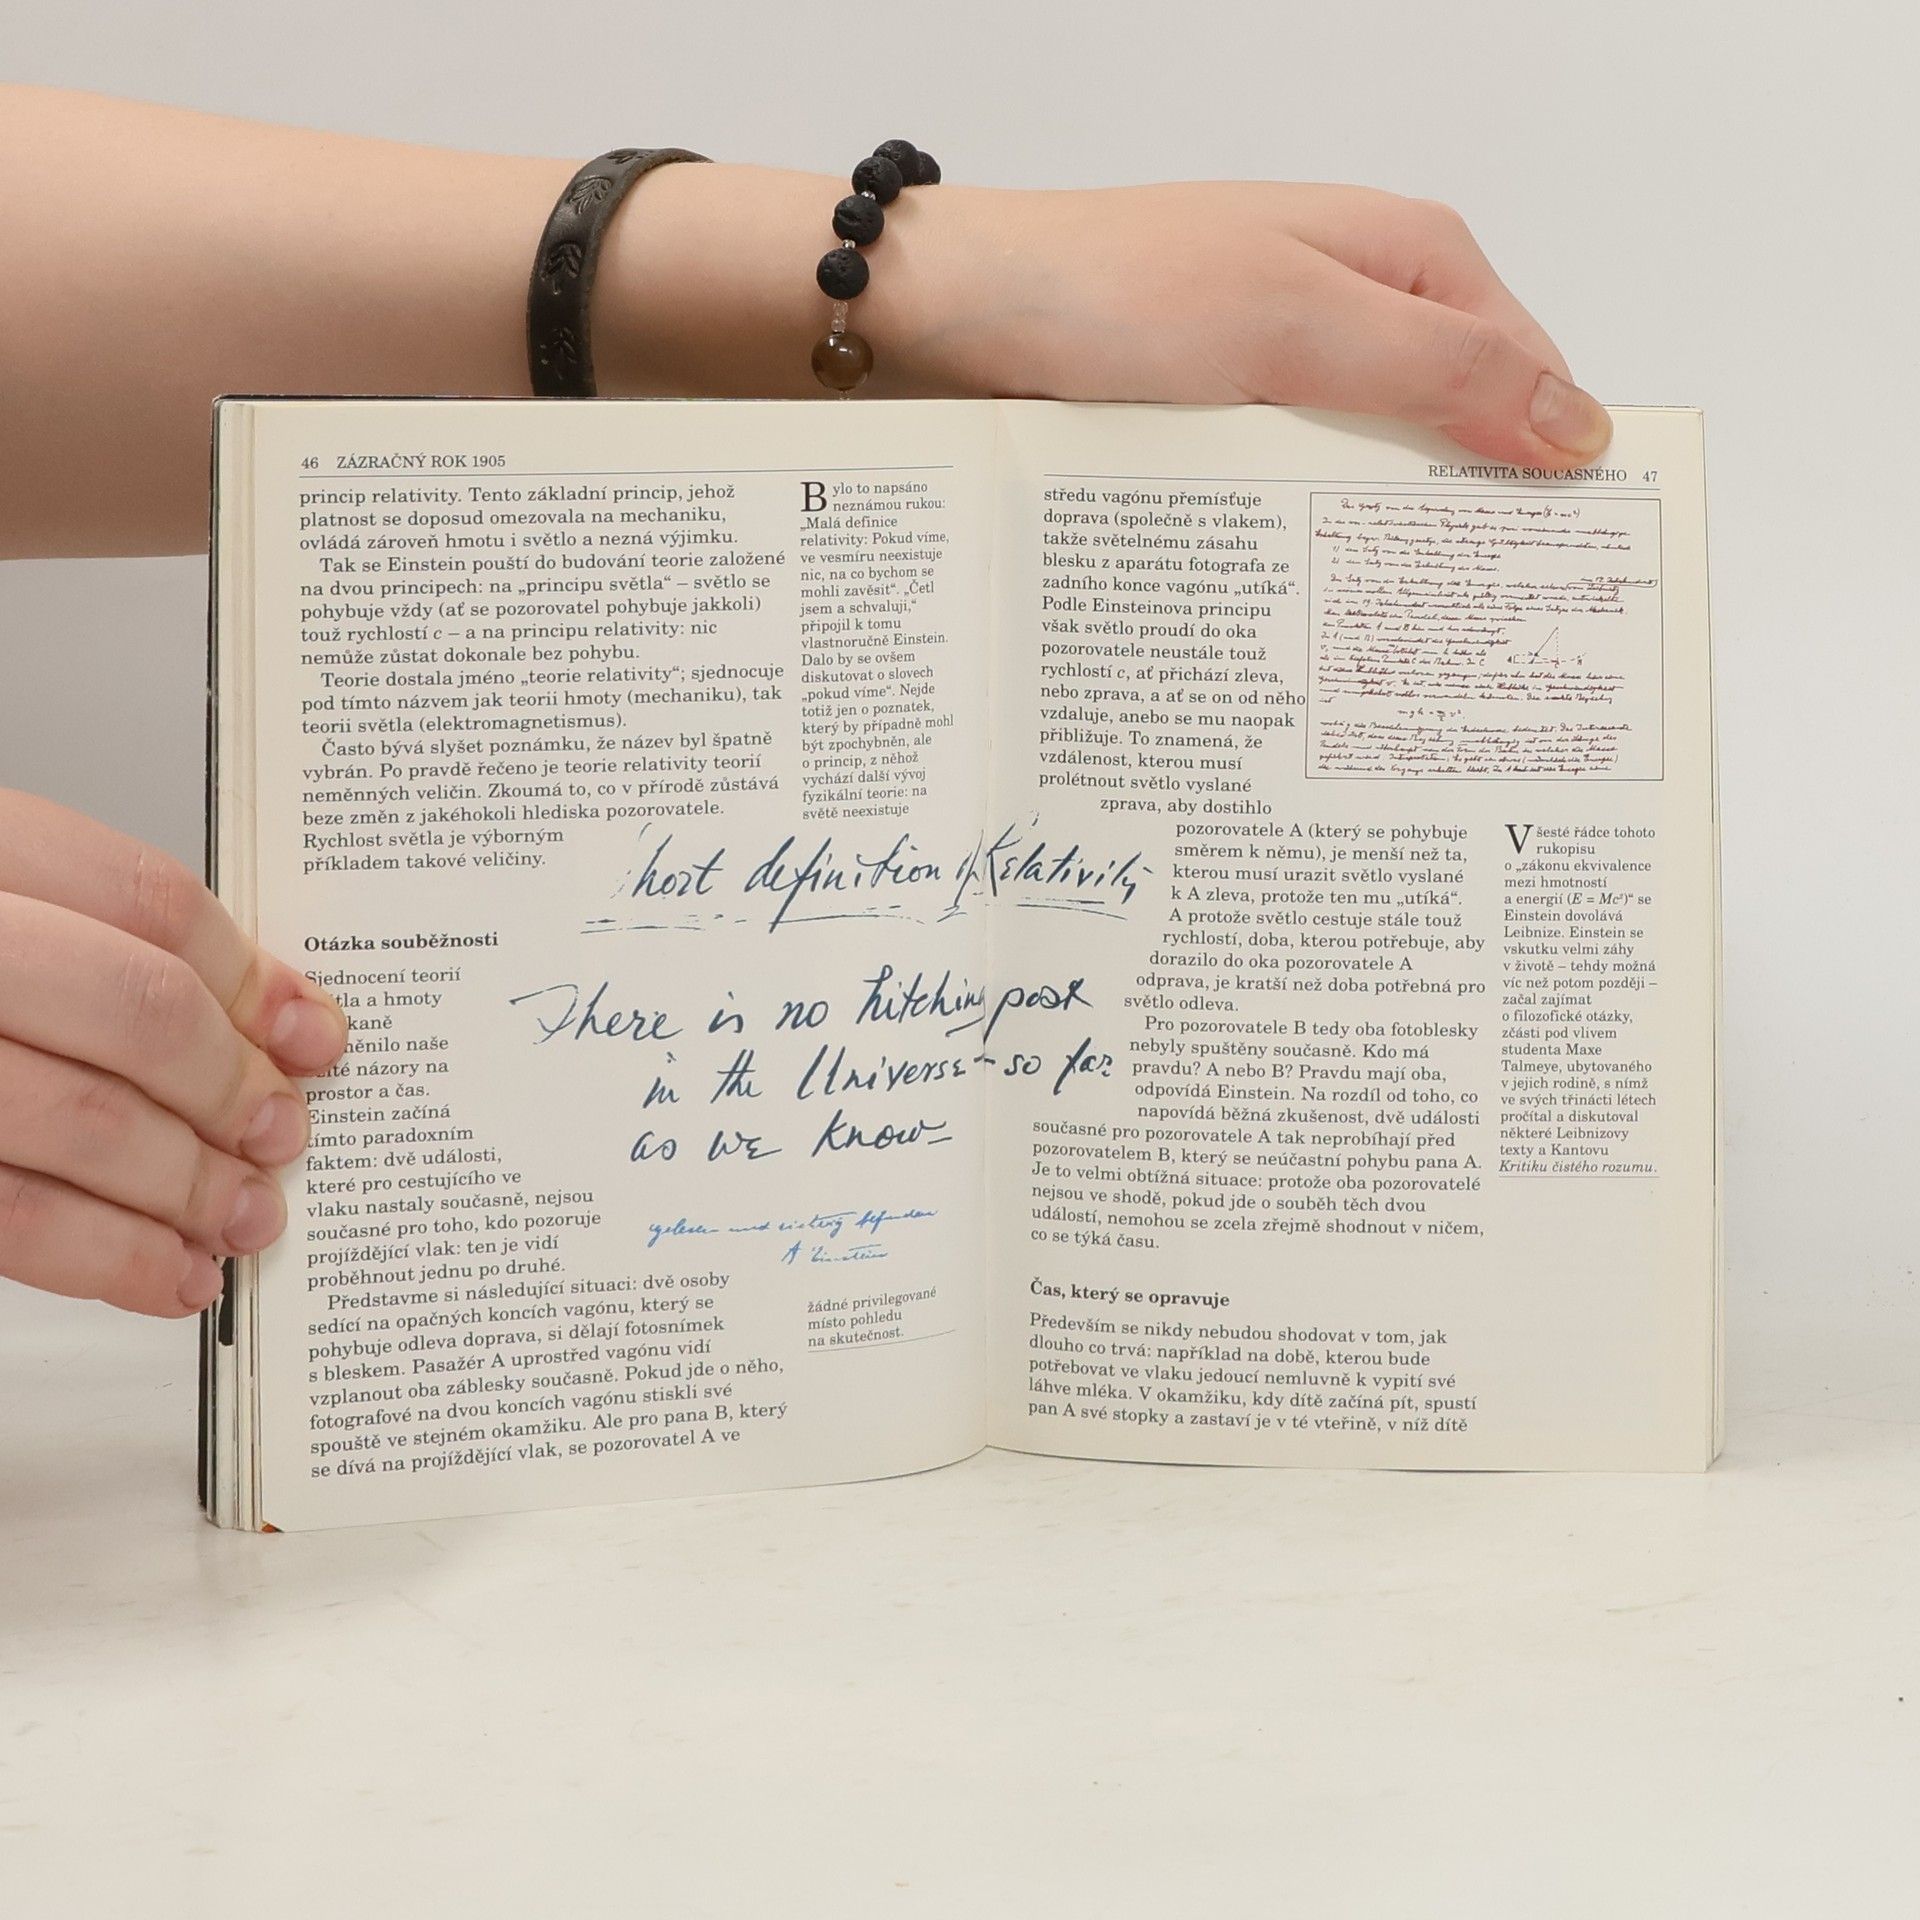 46 ZÁZRAČNÝ ROK 1905
princip relativity. Tento základní princip, jehož
platnost se doposud omezovala na mechaniku,
ovládá zároveň hmotu i světlo a nezná výjimku.
Tak se Einstein pouští do budování teorie založené
na dvou principech: na „principu světla“ – světlo se
pohybuje vždy (ať se pozorovatel pohybuje jakkoli)
touž rychlostí c – a na principu relativity: nic
nemůže zůstat dokonale bez pohybu.
Teorie dostala jméno „teorie relativity“; sjednocuje
pod tímto názvem jak teorii hmoty (mechaniku), tak
teorii světla (elektromagnetismus).
Často bývá slyšet poznámku, že název byl špatně
vybrán. Po pravdě řečeno je teorie relativity teorií
neměnných veličin. Zkoumá to, co v přírodě zůstává
beze změn z jakéhokoli hlediska pozorovatele.
Rychlost světla je výborným
příkladem takové veličiny.
Otázka souběžnosti
Sjednocení teorií
a hmoty
naše
názory na
prostor a čas.
Einstein začíná
tímto paradoxním
faktem: dvě události,
které pro cestujícího ve
vlaku nastaly současně, nejsou
současné pro toho, kdo pozoruje
projíždějící vlak: ten je vidí
proběhnout jednu po druhé.
Představme si následující situaci: dvě osoby
sedící na opačných koncích vagónu, který se
pohybuje odleva doprava, si dělají fotosnímek
s bleskem. Pasažér A uprostřed vagónu vidí
vzplanout oba záblesky současně. Pokud jde o něho,
fotografové na dvou koncích vagónu stiskli své
spouště ve stejném okamžiku. Ale pro pana B, který
se dívá na projíždějící vlak, se pozorovatel A ve
Bylo to napsáno
neznámou rukou:
„Malá definice
relativity: Pokud víme,
ve vesmíru neexistuje
nic, na co bychom se
mohli zavěsit“. „Četl
jsem a schvaluji,“
připojil k tomu
vlastnoručně Einstein.
Dalo by se ovšem
diskutovat o slovech
„pokud víme“. Nejde
totiž jen o poznatek,
který by případně mohl
být zpochybněn, ale
o princip, z něhož
vychází další vývoj
fyzikální teorie: na
světě neexistuje
hort definition of Relativity
There is no hitching post
in the Universe – so far
as we know –
gelesen und richtig befunden
A Einstein
žádné privilegované
místo pohledu
na skutečnost.
RELATIVITA SOUČASNÉHO 47
středu vagónu přemísťuje
doprava (společně s vlakem),
takže světelnému zásahu
blesku z aparátu fotografa ze
zadního konce vagónu „utíká“.
Podle Einsteinova principu
však světlo proudí do oka
pozorovatele neustále touž
rychlostí c, ať přichází zleva,
nebo zprava, a ať se on od něho
vzdaluje, anebo se mu naopak
přibližuje. To znamená, že
vzdálenost, kterou musí
prolétnout světlo vyslané
zprava, aby dostihlo
pozorovatele A (který se pohybuje
směrem k němu), je menší než ta,
kterou musí urazit světlo vyslané
k A zleva, protože ten mu „utíká“.
A protože světlo cestuje stále touž
rychlostí, doba, kterou potřebuje, aby
dorazilo do oka pozorovatele A
odprava, je kratší než doba potřebná pro
světlo odleva.
Pro pozorovatele B tedy oba fotoblesky
nebyly spuštěny současně. Kdo má
pravdu? A nebo B? Pravdu mají oba,
odpovídá Einstein. Na rozdíl od toho, co
napovídá běžná zkušenost, dvě události
současné pro pozorovatele A tak neprobíhají před
pozorovatelem B, který se neúčastní pohybu pana A.
Je to velmi obtížná situace: protože oba pozorovatelé
nejsou ve shodě, pokud jde o souběh těch dvou
událostí, nemohou se zcela zřejmě shodnout v ničem,
co se týká času.
Čas, který se opravuje
Především se nikdy nebudou shodovat v tom, jak
dlouho co trvá: například na době, kterou bude
potřebovat ve vlaku jedoucí nemluvně k vypití své
láhve mléka. V okamžiku, kdy dítě začíná pít, spustí
pan A své stopky a zastaví je v té vteřině, v níž dítě
Všesté řádce tohoto
rukopisu
o „zákonu ekvivalence
mezi hmotností
a energií (E = Mc²)“ se
Einstein dovolává
Leibnize. Einstein se
vskutku velmi záhy
v životě – tehdy možná
víc než potom později –
začal zajímat
o filozofické otázky,
zčásti pod vlivem
studenta Maxe
Talmeye, ubytovaného
v jejich rodině, s nímž
ve svých třinácti létech
pročítal a diskutoval
některé Leibnizovy
texty a Kantovu
Kritiku čistého rozumu.